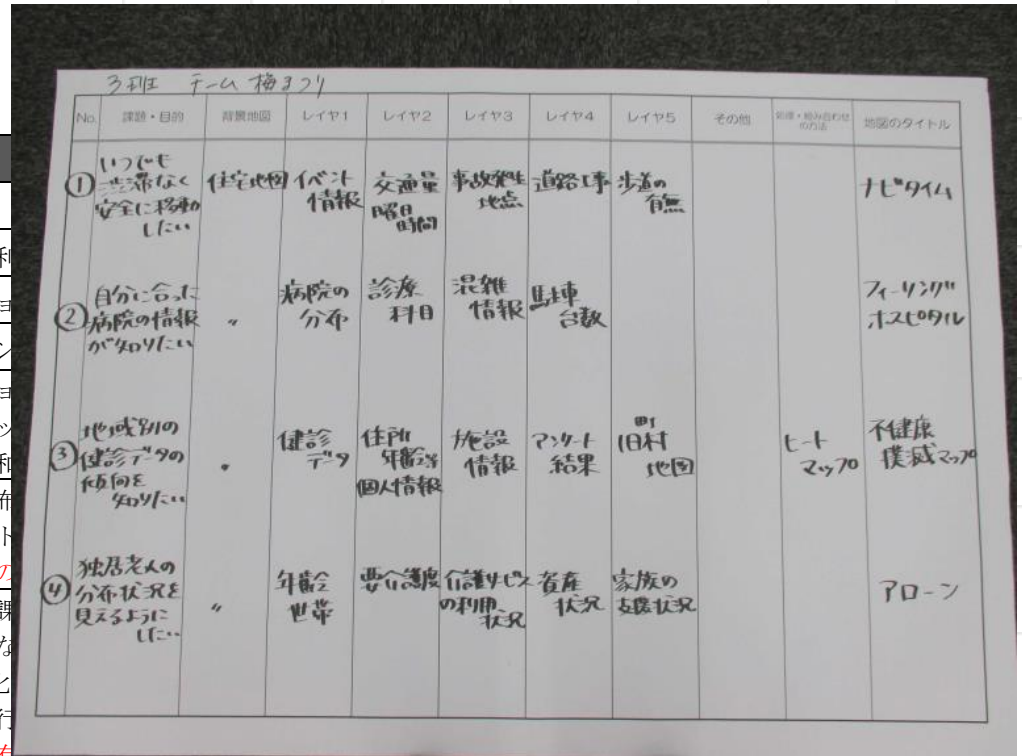 3班 チーム梅まつり
No. 課題・目的 背景地図 レイヤ1 レイヤ2 レイヤ3 レイヤ4 レイヤ5 その他 処理・組み合わせの方法 地図のタイトル
① いつでも渋滞なく安全に移動したい 住宅地図 イベント情報 交通量 曜日 時間 事故発生地点 道路工事 歩道の有無 ナビタイム
② 自分に合った病院の情報が知りたい 〃 病院の分布 診療科目 混雑情報 駐車台数 フィーリングホスピタル
③ 地域別の健診データの傾向を知りたい 健診データ 住所 年齢等 個人情報 施設情報 アンケート結果 旧町村地図 ヒートマップ 不健康撲滅マップ
④ 独居老人の分布状況を見えるようにしたい 〃 年齢 世帯 要介護度 介護サービスの利用状況 資産状況 家族の支援状況 アローン